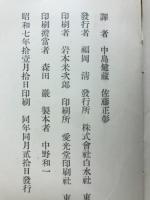 譯者 中島健蔵 佐藤正彰
發行者 福岡淸 發行所 株式會社白水社 東
印刷者 岩本米次郎 印刷所 愛光堂印刷社 東
印刷擔當者 森田巖 製本者 中野和一
昭和七年拾壹月拾日印刷 同年同月貳拾日發行